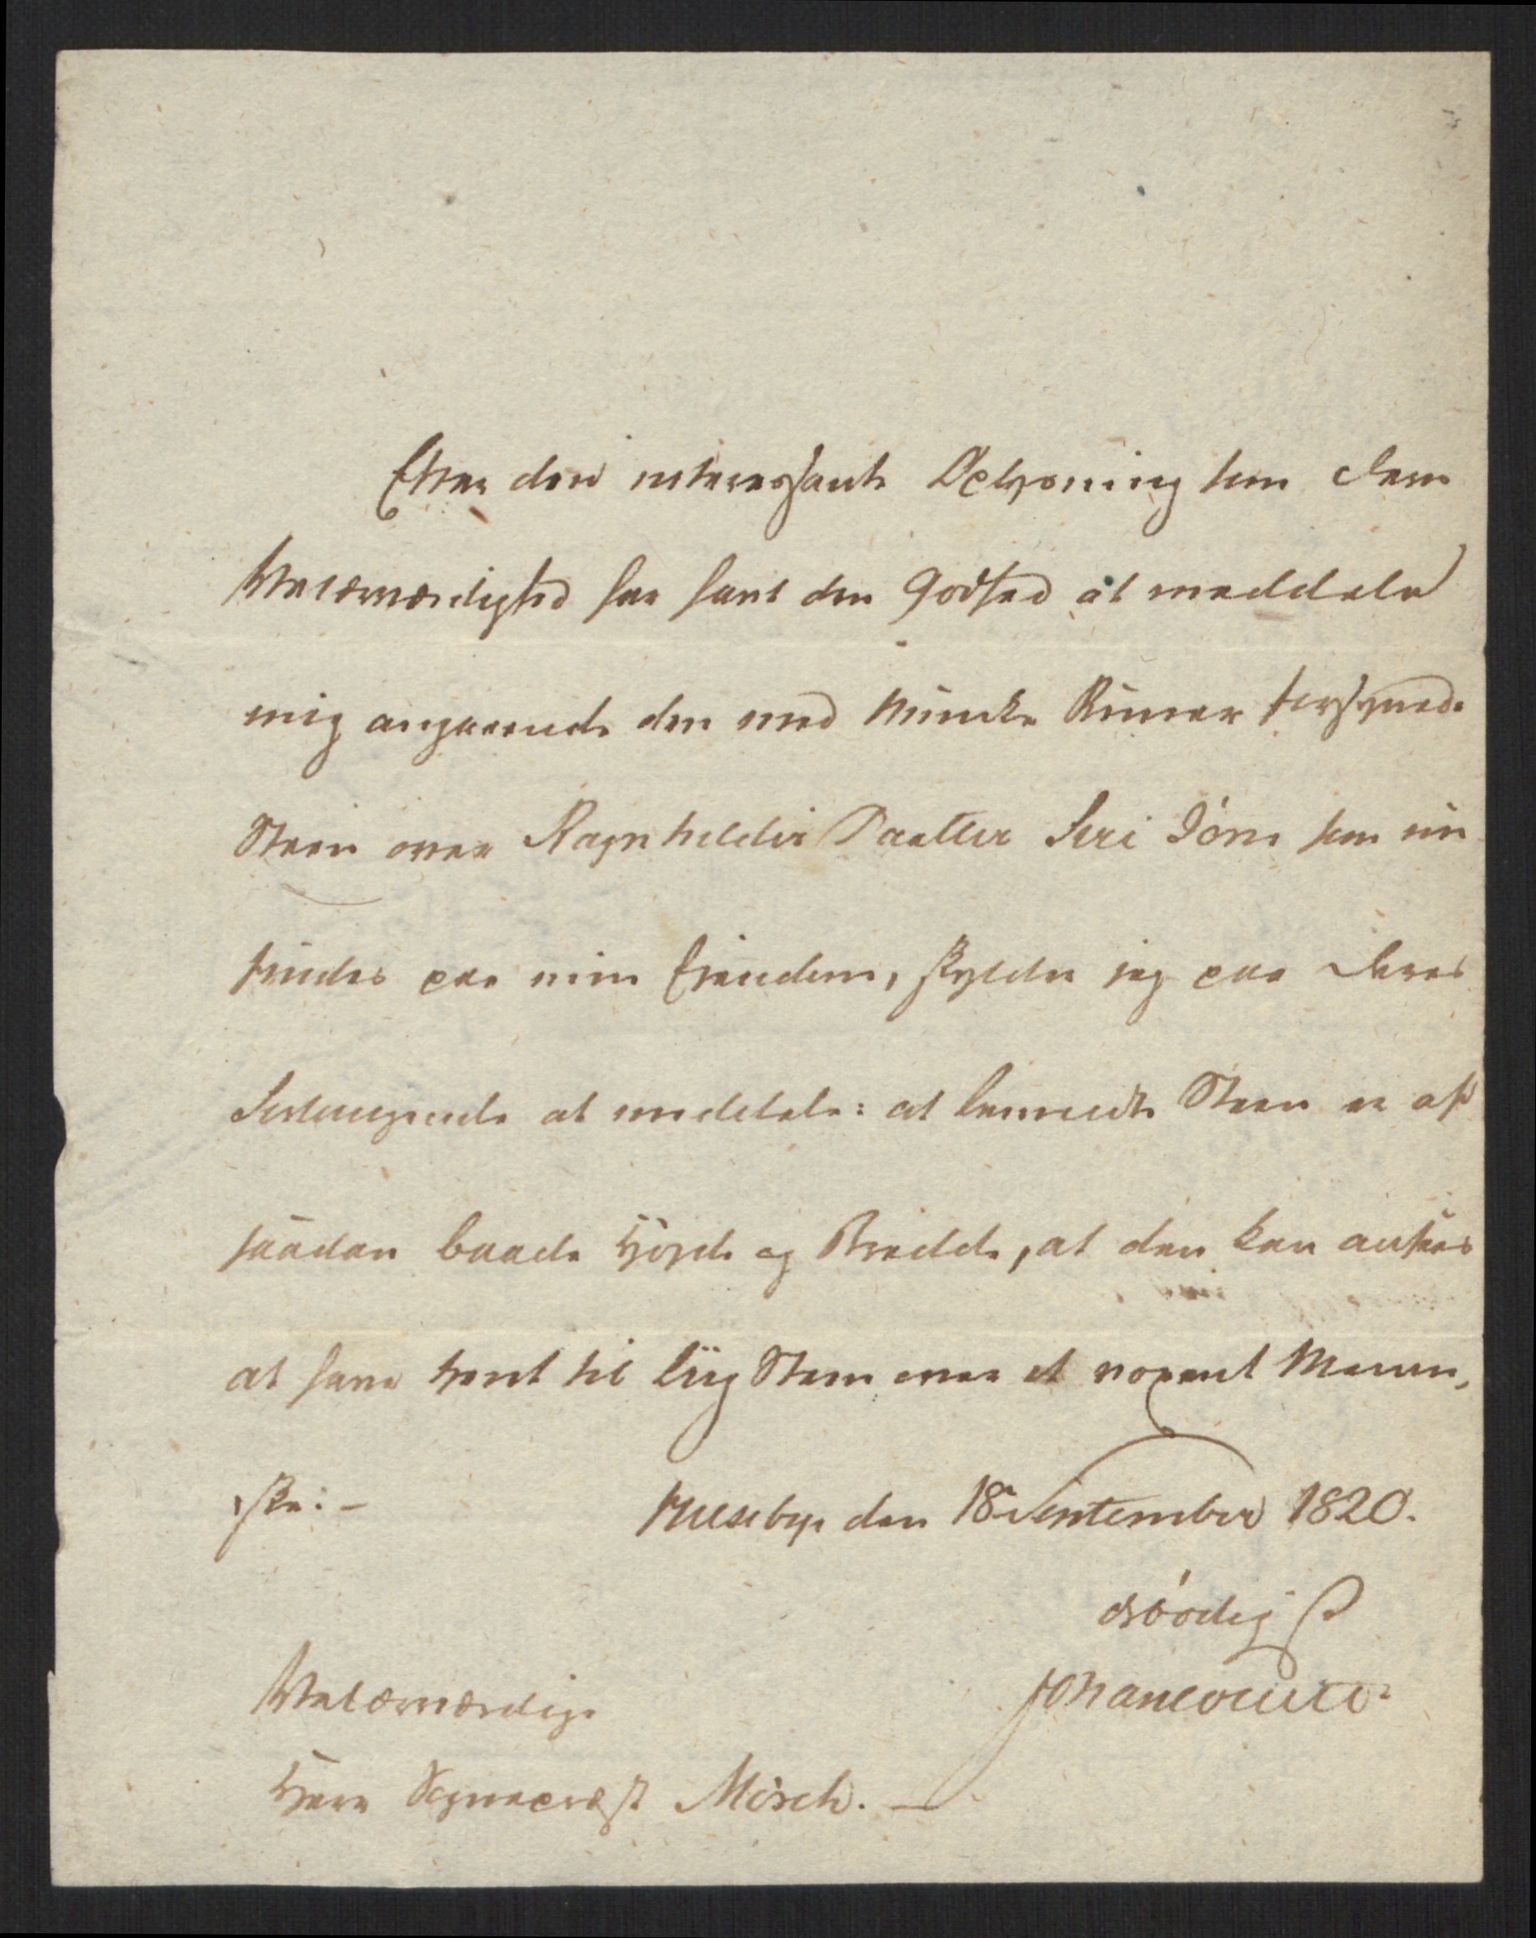 Efter den interessante Oplysning som Deres
Velærværdighed har havt den Godhed at meddele
mig angaaende den med Munke Runer forsynede
Steen over Ragnhilder Daatter Seri Jóns som nu
findes paa min Eiendom, skylder jeg paa Deres
Forlangende at meddele: at bemeldte Steen er af
saadan baade Höyde og Bredde, at den kan ansees
at have tient til Liig Steen over et voxent Menne,
ske: -
Huseby den 18 September 1820.
ærbödigst
Velærværdige
Herr Sognepræst Mörch. -